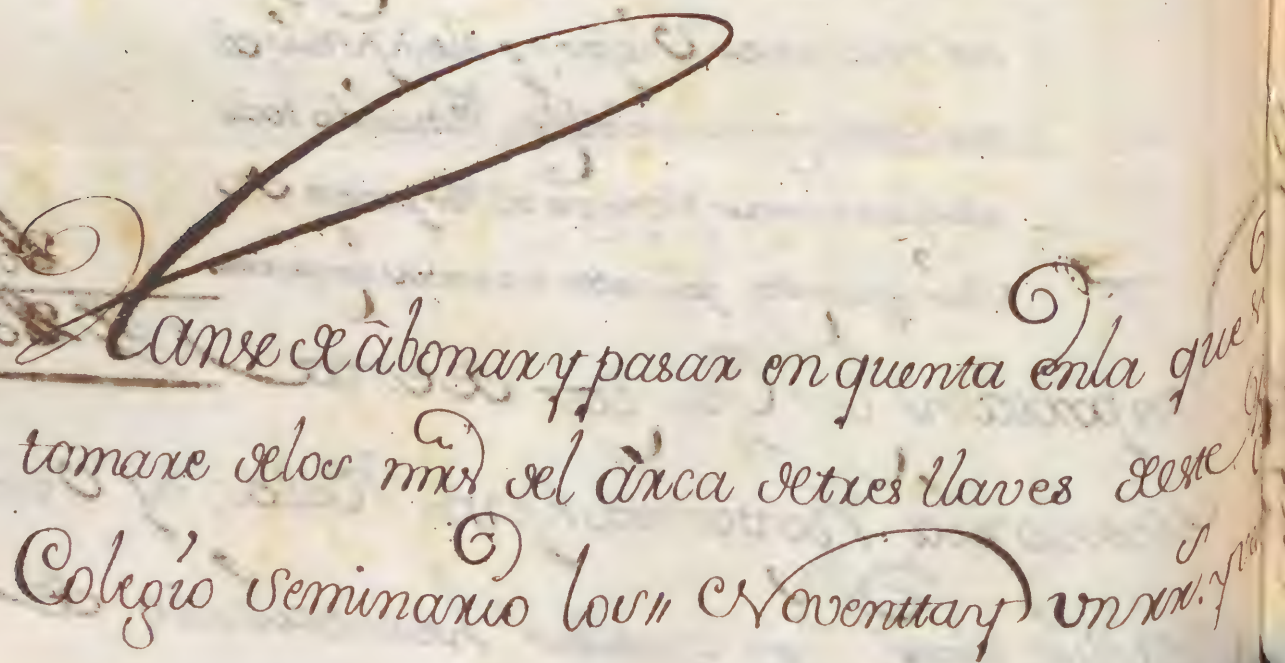 Hanse de àbonar y pasar en quenta enla que se
tomare delos mrs del àrca detres llaves deste
Colegio Seminario los Noventta y un rrs. y